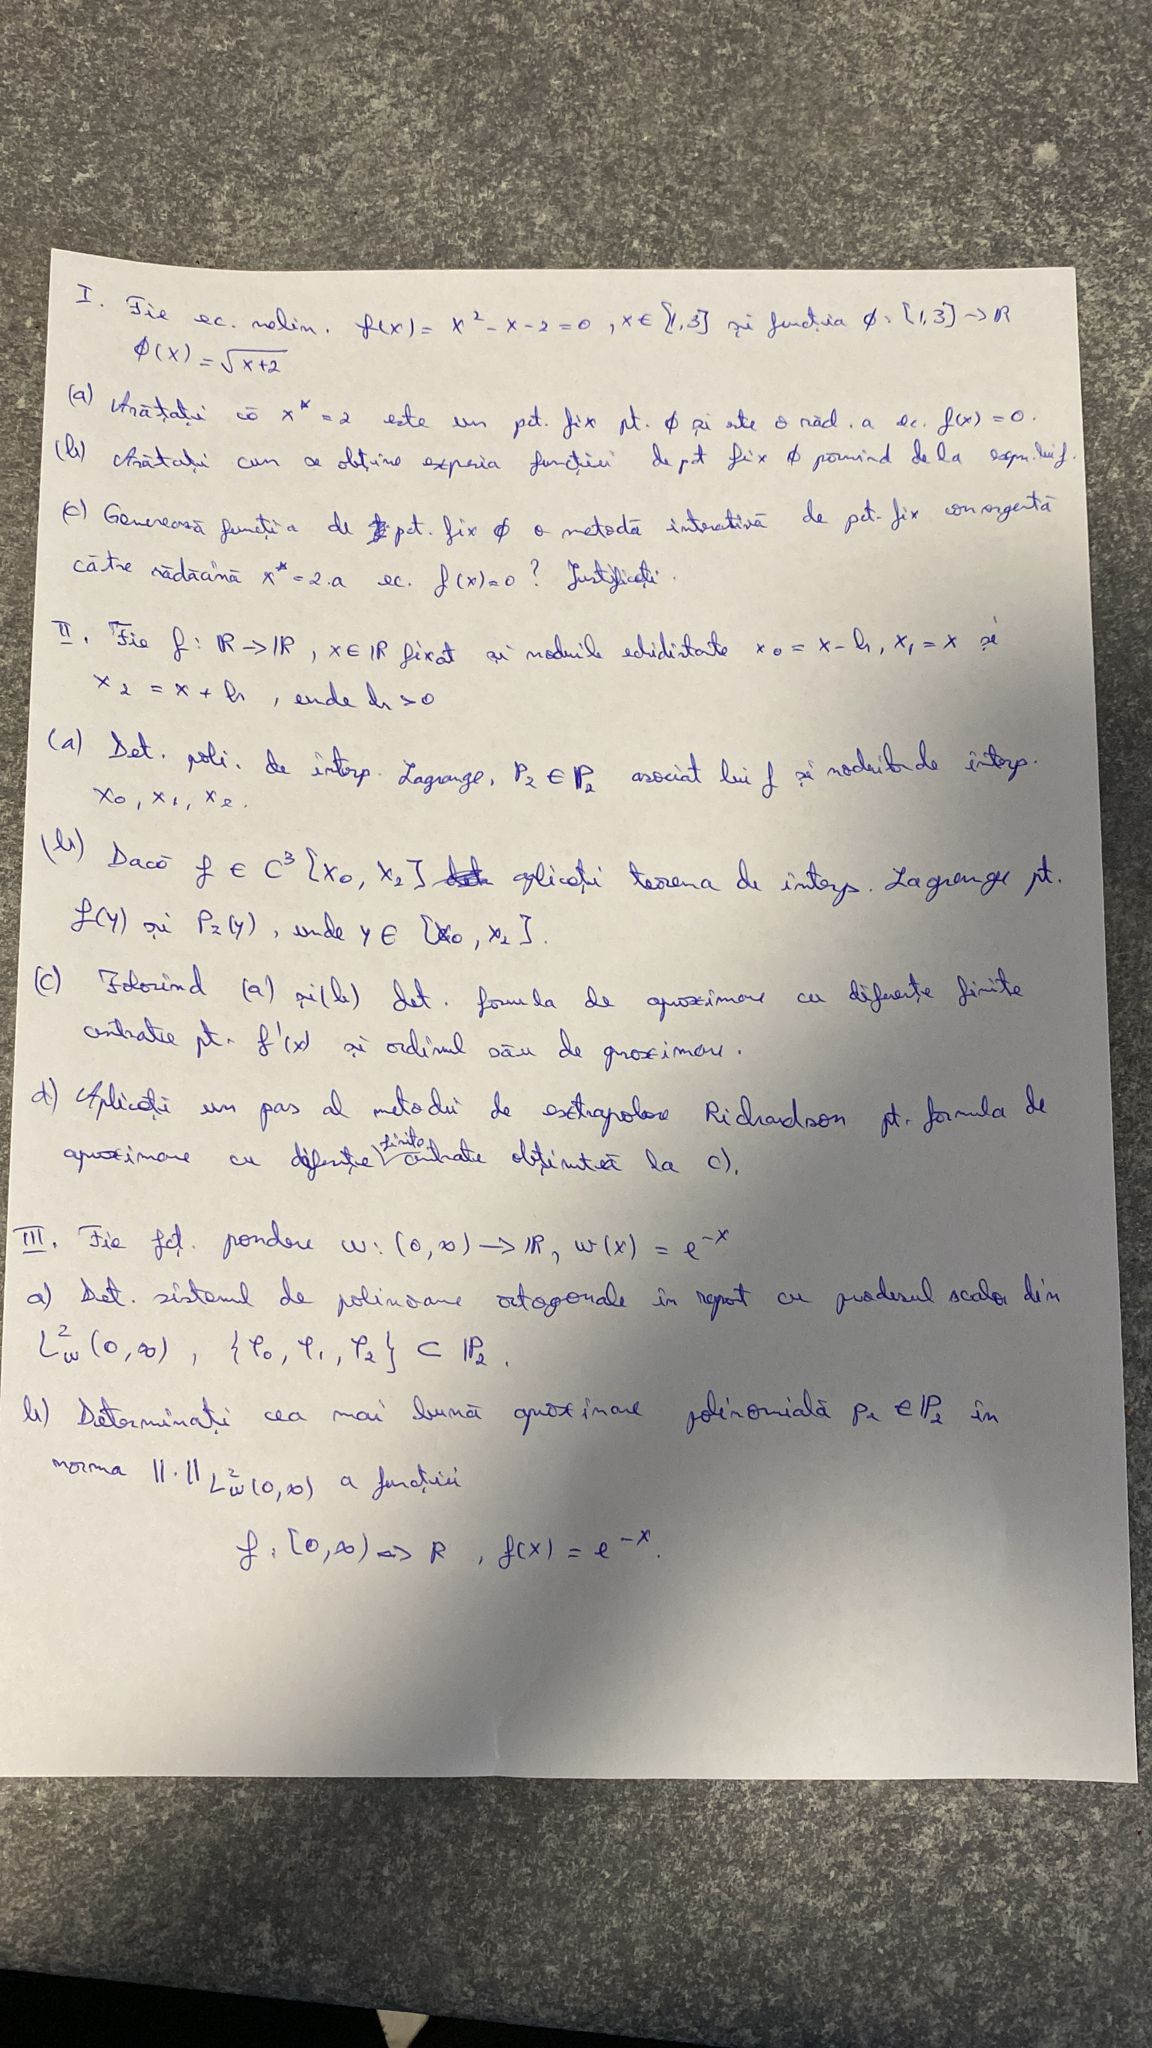 I. Fie ec. nelin. f(x) = x² - x - 2 = 0 , x ∈ [1,3] și funcția ϕ : [1,3] → R
ϕ(x) = √x+2
(a) Arătați că x* = 2 este un pct. fix pt. ϕ și este o răd. a ec. f(x) = 0.
(b) Arătați cum se obține expresia funcției de pct fix ϕ pornind de la expr. lui f.
(c) Generează funcția de pct. fix ϕ o metodă interativă de pct. fix convergentă
către rădăcină x* = 2 a ec. f(x) = 0 ? Justificați.
II. Fie f : R → R , x ∈ R fixat și nodurile echidistate x0 = x - h , x1 = x și
x2 = x + h , unde h > 0
(a) Det. poli. de interp. Lagrange, P2 ∈ P2 asociat lui f și nodurilor de interp.
x0 , x1 , x2 .
(b) Dacă f ∈ C³ [x0 , x2] aplicați teorema de interp. Lagrange pt.
f(y) și P2(y) , unde y ∈ [x0 , x2] .
(c) Folosind (a) și (b) det. formula de aproximare cu diferențe finite
centrate pt. f'(x) și ordinul său de aproximare.
d) Aplicați un pas al metodei de extrapolare Richardson pt. formula de
aproximare cu diferențe finite centrate obținută la c).
III. Fie fct. pondere w : (0, ∞) → R , w(x) = e^-x
a) Det. sistemul de polinoame ortogonale în raport cu produsul scalar din
L²w (0, ∞) , {φ0 , φ1 , φ2} ⊂ P2 .
b) Determinați cea mai bună aproximare polinomială p2 ∈ P2 în
norma ||·|| L²w(0,∞) a funcției
f : [0, ∞) → R , f(x) = e^-x .